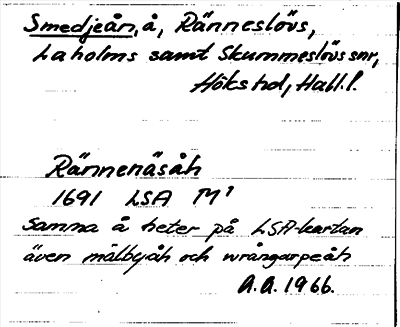 Smedjeån, å, Ränneslövs,
Laholms samt Skummeslövs snr,
Höks hd, Hall.l.
Rännenäsåh
1691 LSA M¹
Samma å heter på LSA-kartan
även mälbyåh och wrångarpeåh
A.A. 1966.